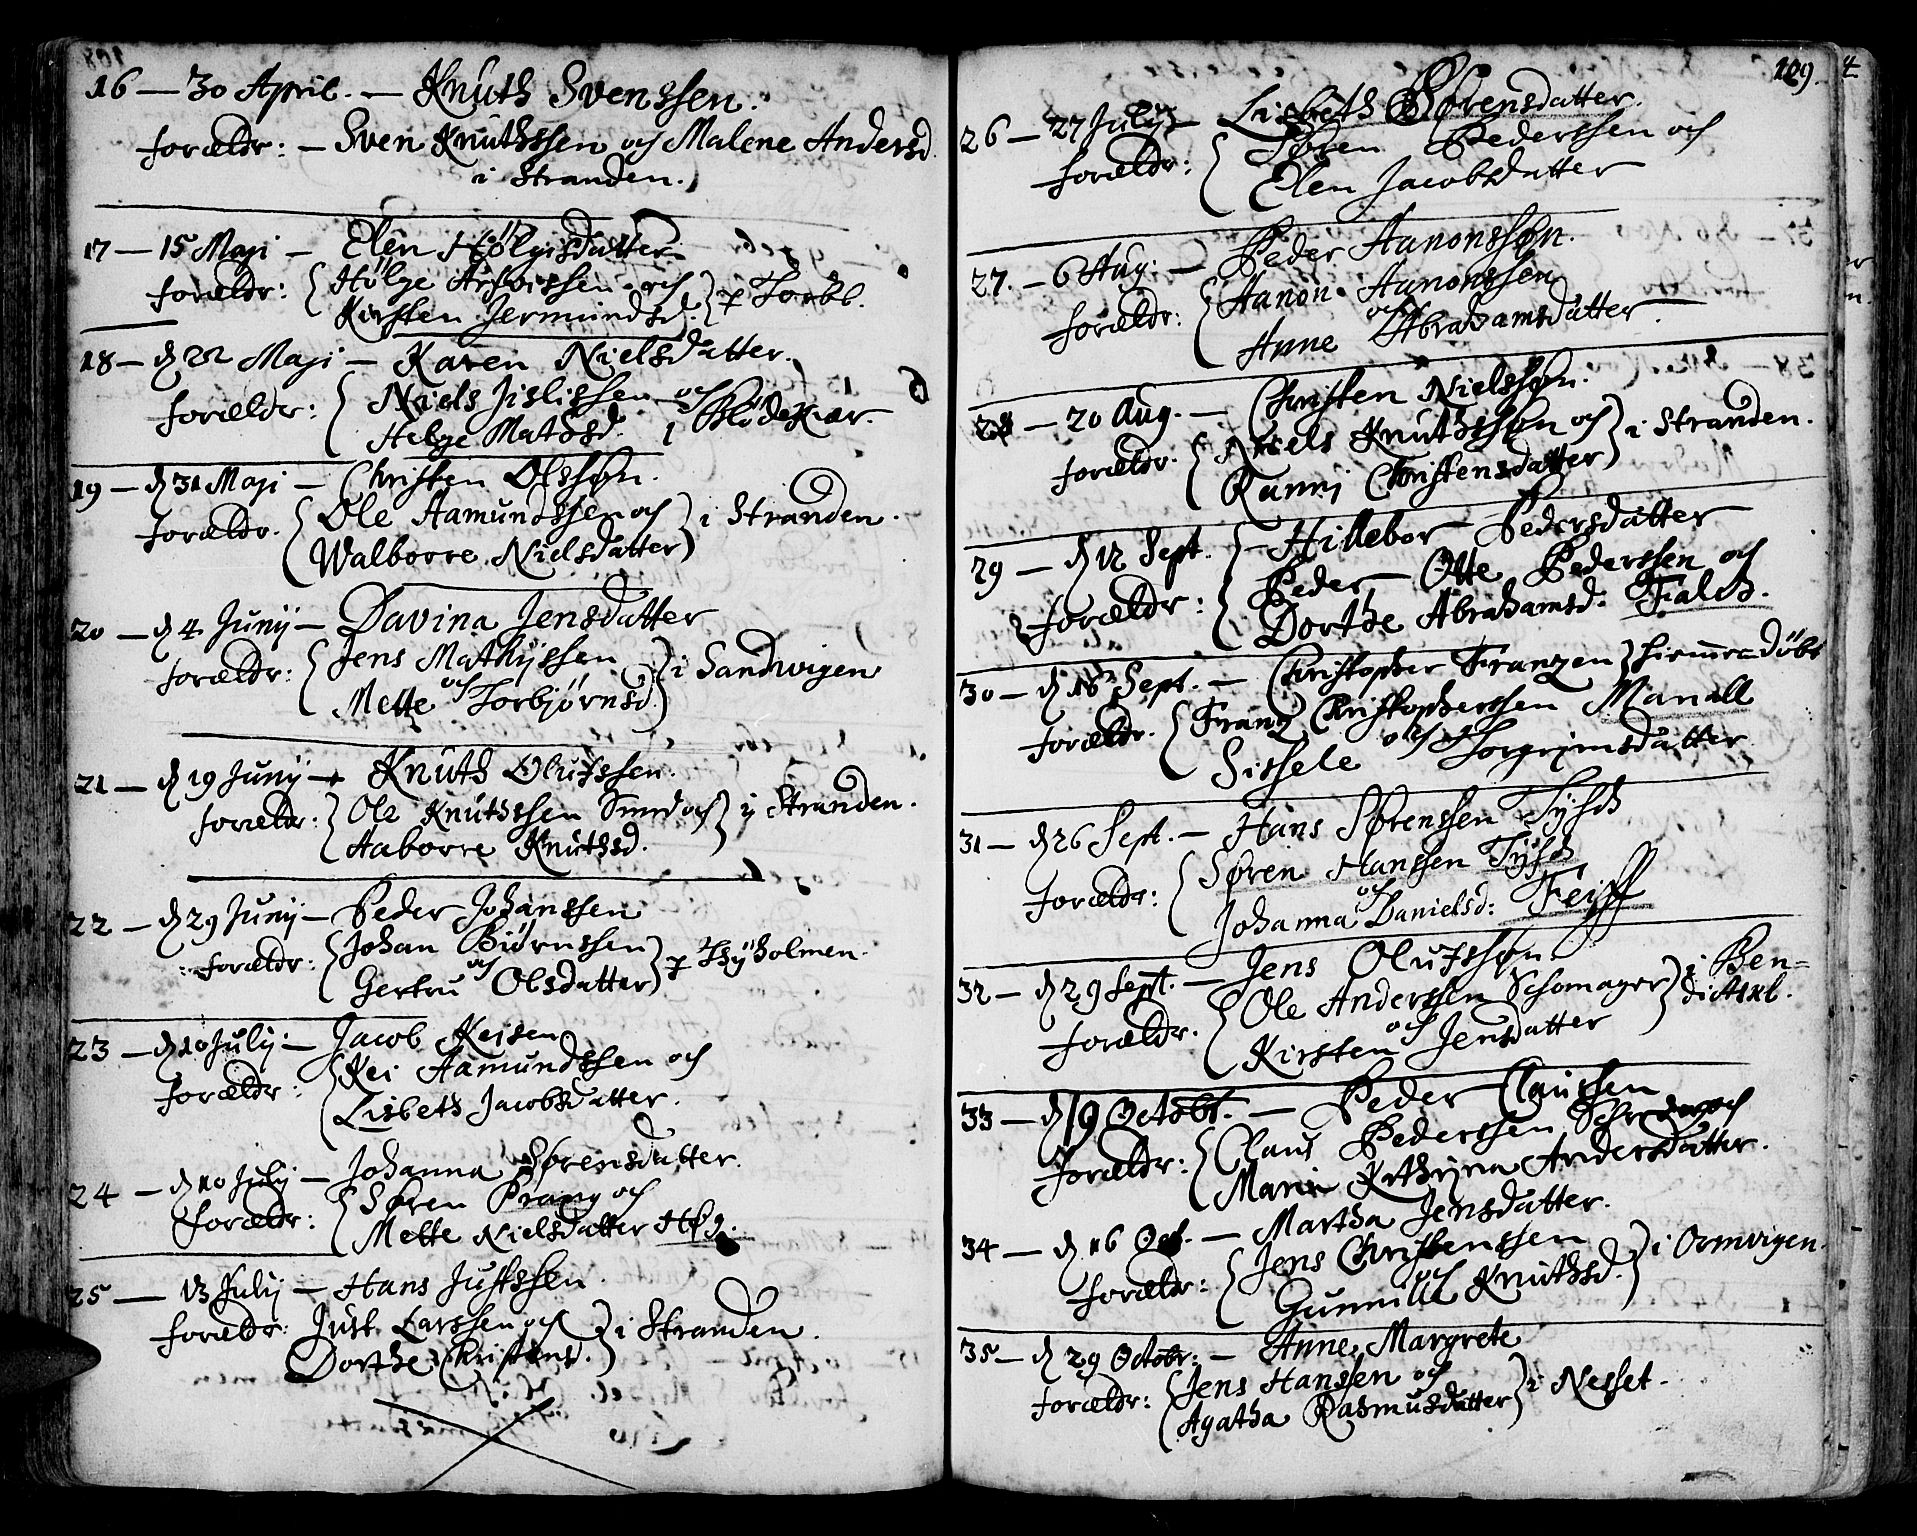 108
16 — 30 April. — Knuth Svenssen.
forældr: — Sven Knuthssen och Malene Andersd
i Stranden.
17 — 15 Maji — Elen Hölgisdatter
forældr: Hölge och
Kirsten Jermundsd.
18 — d 22 Maji — Karen Nielsdatter.
forældr: Niels Jislissen och
Helge Matsd. i Blödekiær.
19 — d 31 Maji — Christen Olssøn.
forældr. Ole Aamundssen och
Walborre Nielsdatter i Stranden.
20 — d 4 Junij — Davina Jensdatter
forældr: Jens Mathijssen
och i Sandwigen
Mette Torbjørnsd.
21 — d 19 Junij — Knuth Olufssen.
forældr: Ole Knuthssen och ij Stranden.
Aaborre Knuthsd.
22 — d 29 Junij — Peder Johanssen
forældr: Johan Biørnssen
och Thÿholmen.
Gertru Olsdatter
23 — d 10 Julij — Jacob Keisen
forældr: Kei Aamundssen och
Lisbeth Jacobsdatter.
24 — d 10 Julij — Johanna Sørensdatter.
forældr: Søren Prang och
Mette Nielsdatter
25 — 13 Julij — Hans Justssen.
forældr: Just Larssen och
Dorthe Christensd. i Stranden.
109.
26 — 27 Julij — Lisbeth Sørensdatter.
forældr: Søren Pederssen och
Elen Jacobsdatter
27. — 6 Aug: — Peder Aanonssøn.
forældr: Aanon Aanonssen
och
Anne Abrahamsdatter.
28 — 20 Aug. — Christen Nielssøn.
forældr. Niels Knuthssøn och i Stranden.
Ranni Christensdatter
29 — d 12 Sept. — Hillebor Pedersdatter
forældr: Peder Otte Pederssen och
Dorthe Abrahamsd: Falch.
30 — d 16 Sept. — Christopher Franzen hiemmedöbt
forældr. Franz Christopherssen Manall
och
Sissele Torgrimsdatter
31 — d 26 Sept. — Hans Sørenssen Tÿsch
forældr: Søren Hanssen Tÿsch
och
Johanna Danielsd: Feiff
32 — d 29 Sept. — Jens Olufssøn
forældr. Ole Anderssen Schomager i Ben-
och
Kirsten Jensdatter
33 — d 19 Octobr. — Peder Claussen
forældr: Claus Pederssen och
Maria Kathrina Andersdatter.
34 — d 16 Oct. — Martha Jensdatter.
forældr: Jens Christenssen i Ormvigen.
och
Gunnille Knuthsd.
35 — d 29 Octobr: — Anne Margrete
forældr: Jens Hansen och
Agatha Rasmusdatter i Nesset.